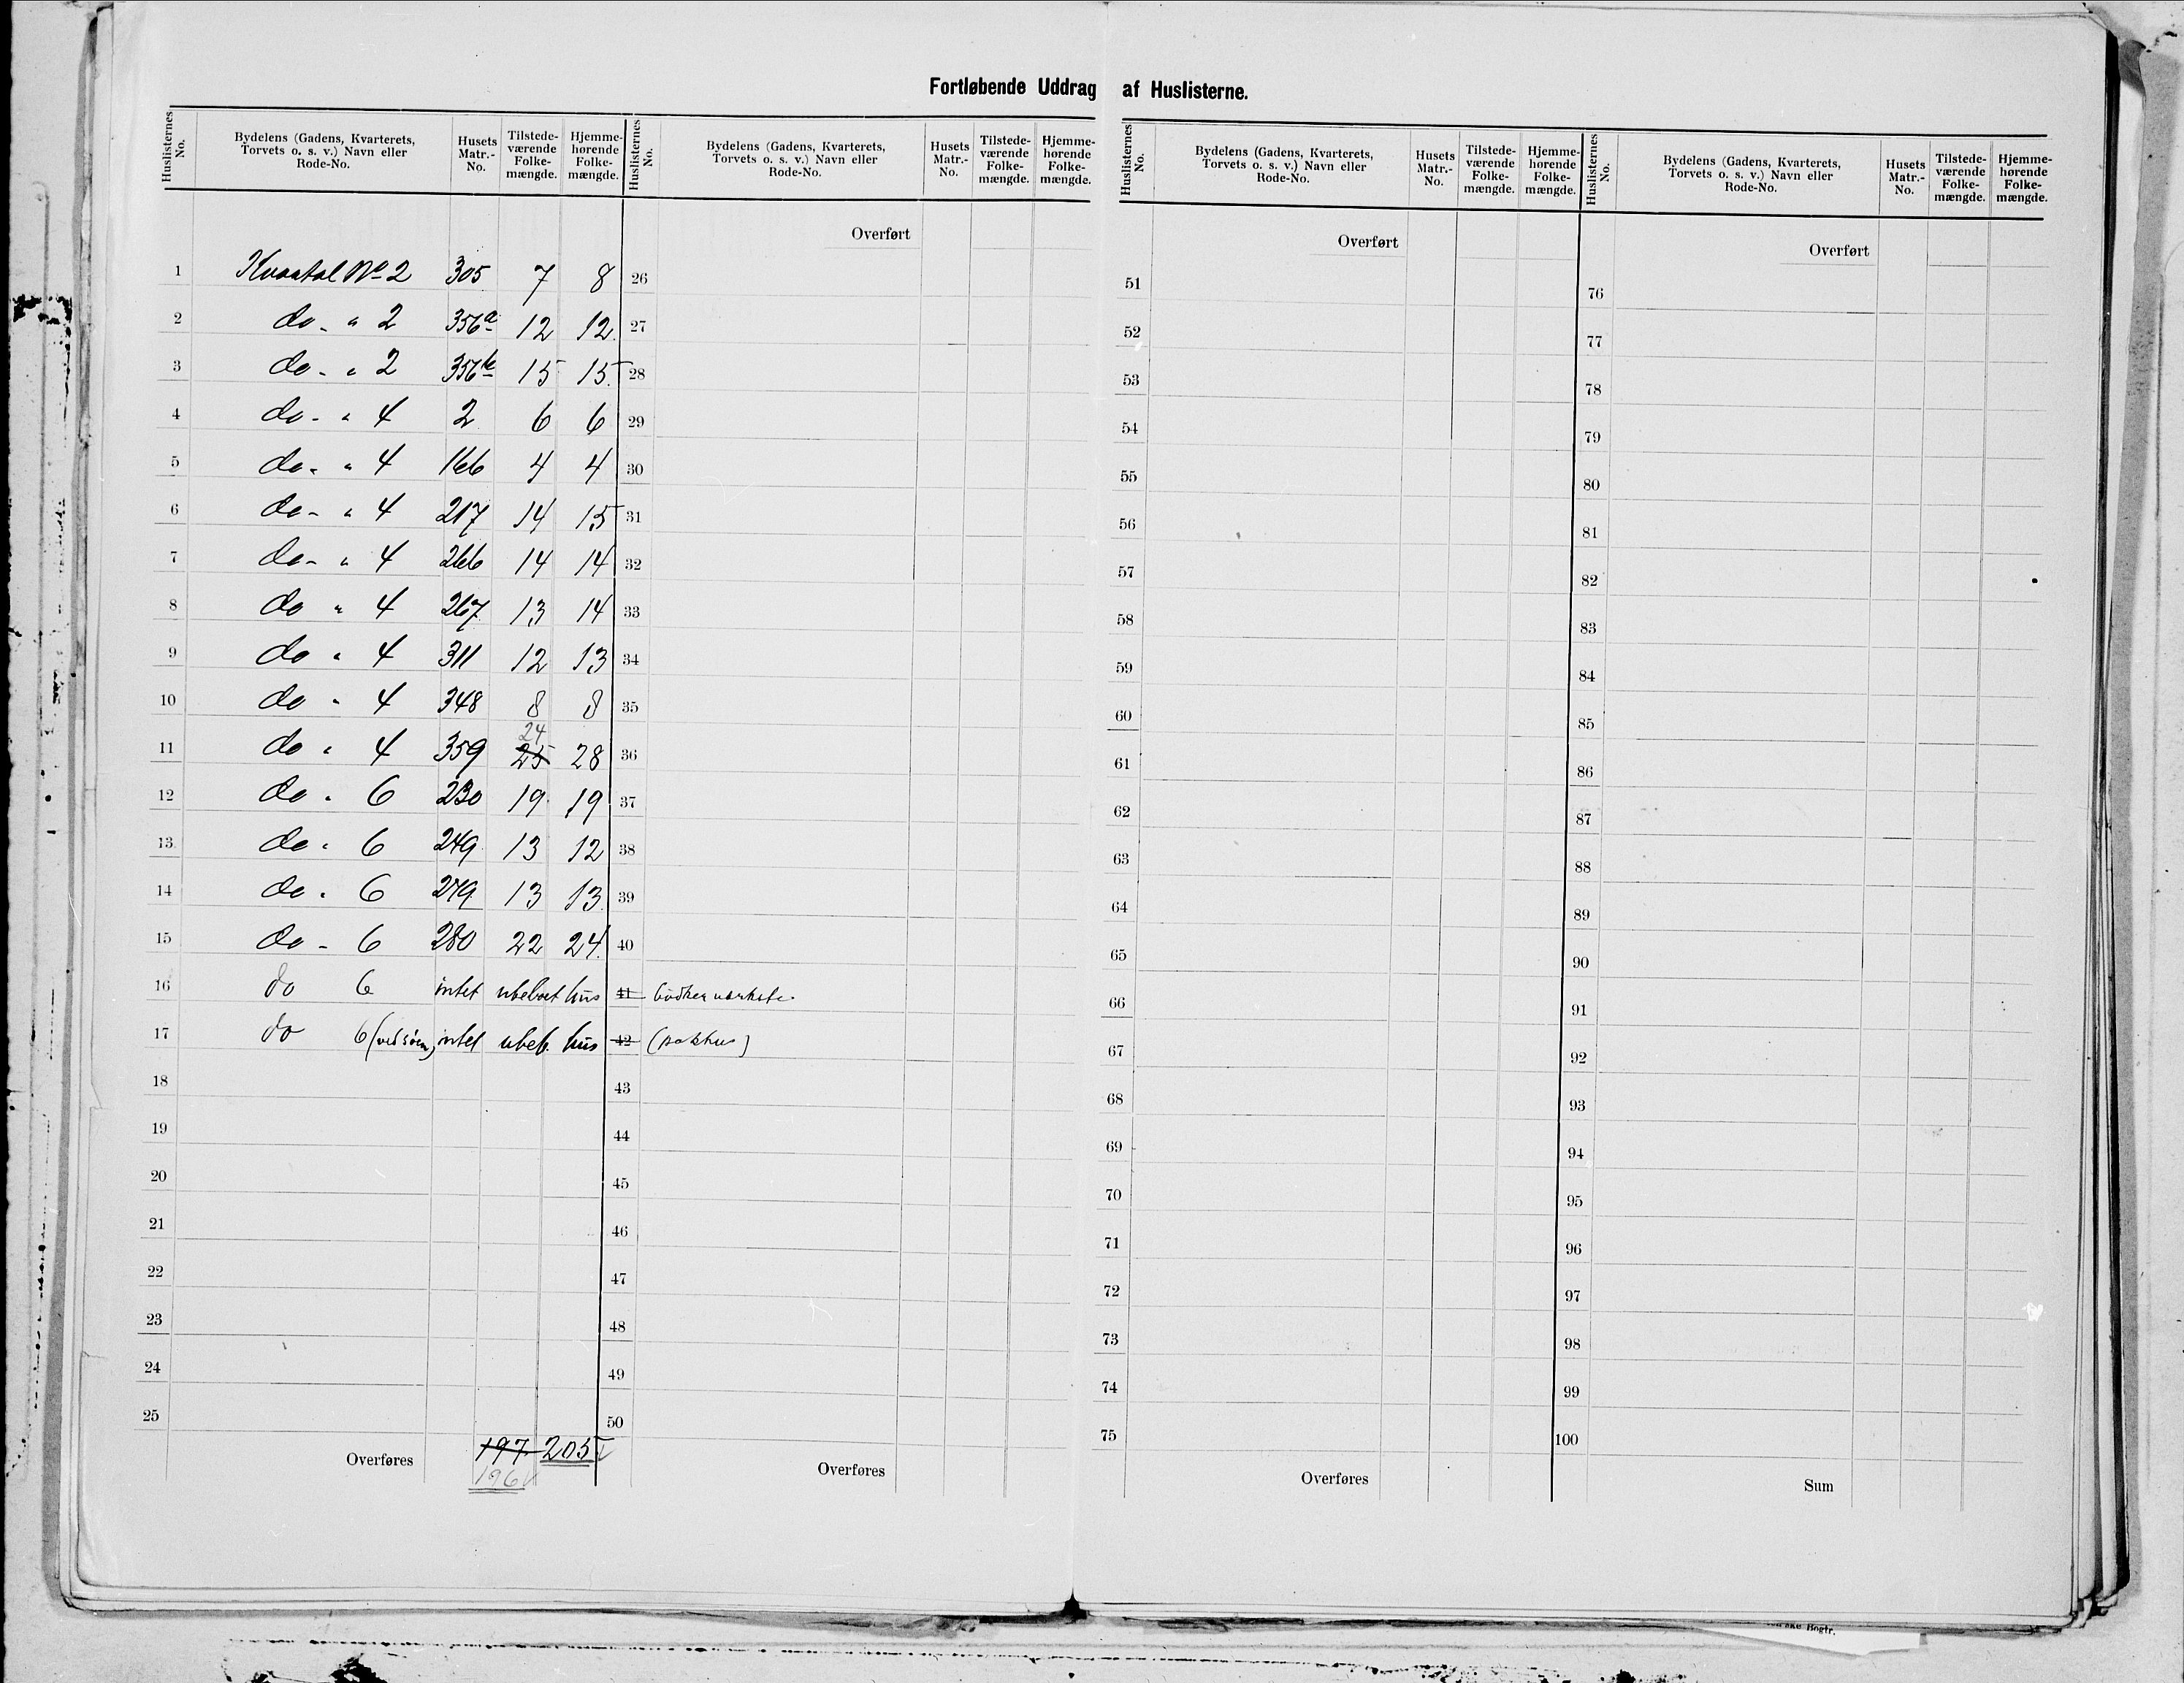 Fortløbende Uddrag af Huslisterne.
Huslisternes No. Bydelens (Gadens, Kvarterets, Torvets o. s. v.) Navn eller Rode-No. Husets Matr.-No. Tilstede-værende Folke-mængde. Hjemme-hørende Folke-mængde.
1 Kvartal No 2 305 7 8
2 do - " 2 356a 12 12
3 do - " 2 356b 15 15
4 do - " 4 2 6 6
5 do - " 4 166 4 4
6 do - " 4 217 14 15
7 do - " 4 266 14 14
8 do " 4 267 13 14
9 do " 4 311 12 13
10 do " 4 348 8 8
24
11 do " 4 359 25 28
12 do " 6 230 19 19
13 do " 6 249 13 12
14 do " 6 279 13 13
15 do - 6 280 22 24
16 do 6 intet ubeboet hus 41 bödkerværksted
17 do 6 (ved söen) intet ubeb. hus 42 (pakhus)
18
19
20
21
22
23
24
25
Overføres 197 205
196
Huslisternes No. Bydelens (Gadens, Kvarterets, Torvets o. s. v.) Navn eller Rode-No. Husets Matr.-No. Tilstede-værende Folke-mængde. Hjemme-hørende Folke-mængde.
Overført
26
27
28
29
30
31
32
33
34
35
36
37
38
39
40
43
44
45
46
47
48
49
50
Overføres
Huslisternes No. Bydelens (Gadens, Kvarterets, Torvets o. s. v.) Navn eller Rode-No. Husets Matr.-No. Tilstede-værende Folke-mængde. Hjemme-hørende Folke-mængde.
Overført
51
52
53
54
55
56
57
58
59
60
61
62
63
64
65
66
67
68
69
70
71
72
73
74
75
Overføres
Huslisternes No. Bydelens (Gadens, Kvarterets, Torvets o. s. v.) Navn eller Rode-No. Husets Matr.-No. Tilstede-værende Folke-mængde. Hjemme-hørende Folke-mængde.
Overført
76
77
78
79
80
81
82
83
84
85
86
87
88
89
90
91
92
93
94
95
96
97
98
99
100
Sum
Bogtr.